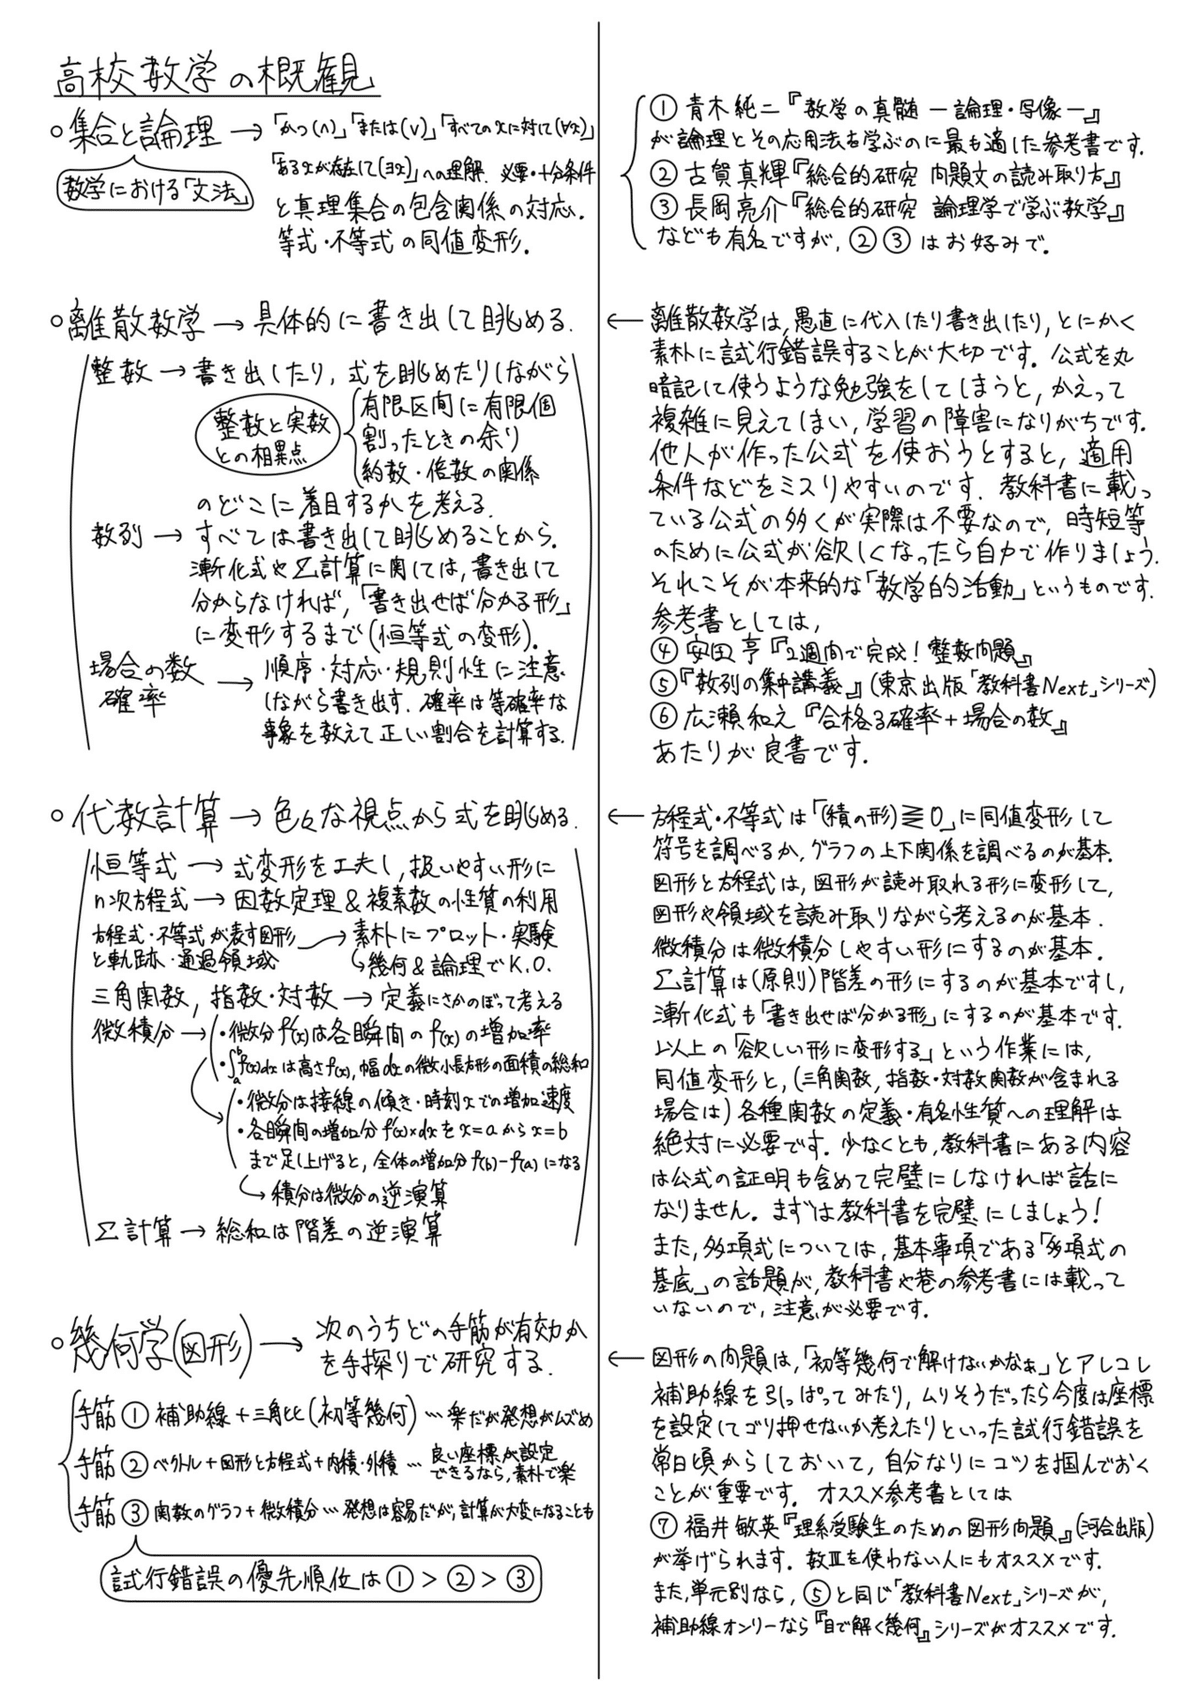 高校数学の概観
○集合と論理 → 「かつ(∧)」「または(∨)」「すべてのxに対して(∀x)」
数学における「文法」
「あるxが存在して(∃x)」への理解、必要・十分条件
と真理集合の包含関係の対応.
等式・不等式の同値変形.
○離散数学 → 具体的に書き出して眺める.
整数 → 書き出したり, 式を眺めたりしながら
整数と実数
との相異点
有限区間に有限個
割ったときの余り
約数・倍数の関係
のどこに着目するかを考える.
数列 → すべては書き出して眺めることから.
漸化式やΣ計算に関しては, 書き出して
分からなければ, 「書き出せば分かる形」
に変形するまで(恒等式の変形).
場合の数
確率
→ 順序・対応・規則性に注意
しながら書き出す. 確率は等確率な
事象を数えて正しい割合を計算する.
○代数計算 → 色々な視点から式を眺める.
恒等式 → 式変形を工夫し, 扱いやすい形に
n次方程式 → 因数定理&複素数の性質の利用
方程式・不等式が表す図形
と軌跡・通過領域
→ 素朴にプロット・実験
↪幾何&論理でK.O.
三角関数, 指数・対数 → 定義にさかのぼって考える
微積分 → ・微分f'(x)は各瞬間のf(x)の増加率
・∫ₐᵇf(x)dxは高さf(x), 幅dxの微小長方形の面積の総和
・微分は接線の傾き・時刻xでの増加速度
・各瞬間の増加分f'(x)×dxをx=aからx=b
まで足し上げると, 全体の増加分f(b)-f(a)になる
↪ 積分は微分の逆演算
Σ計算 → 総和は階差の逆演算
○幾何学(図形) → 次のうちどの手筋が有効か
を手探りで研究する.
手筋① 補助線+三角比(初等幾何)…楽だが発想がムズめ
手筋② ベクトル+図形と方程式+内積・外積…良い座標が設定
できるなら, 素朴で楽
手筋③ 関数のグラフ+微積分…発想は容易だが, 計算が大変になることも
試行錯誤の優先順位は①>②>③
① 青木純二『数学の真髄 ー論理・写像ー』
が論理とその応用法を学ぶのに最も適した参考書です.
② 古賀真輝『総合的研究 問題文の読み取り方』
③ 長岡亮介『総合的研究 論理学で学ぶ数学』
なども有名ですが, ②③はお好みで.
← 離散数学は, 愚直に代入したり書き出したり, とにかく
素朴に試行錯誤することが大切です. 公式を丸
暗記して使うような勉強をしてしまうと, かえって
複雑に見えてしまい, 学習の障害になりがちです.
他人が作った公式を使おうとすると, 適用
条件などをミスりやすいのです. 教科書に載っ
ている公式の多くが実際は不要なので, 時短等
のために公式が欲しくなったら自力で作りましょう.
それこそが本来的な「数学的活動」というものです.
参考書としては,
④ 安田亨『2週間で完成!整数問題』
⑤『数列の集中講義』(東京出版「教科書Next」シリーズ)
⑥ 広瀬和之『合格る確率+場合の数』
あたりが良書です.
← 方程式・不等式は「(積の形)⋛0」に同値変形して
符号を調べるか, グラフの上下関係を調べるのが基本.
図形と方程式は, 図形が読み取れる形に変形して,
図形や領域を読み取りながら考えるのが基本.
微積分は微積分しやすい形にするのが基本.
Σ計算は(原則)階差の形にするのが基本ですし,
漸化式も「書き出せば分かる形」にするのが基本です.
以上の「欲しい形に変形する」という作業には,
同値変形と, (三角関数, 指数・対数関数が含まれる
場合は)各種関数の定義・有名性質への理解は
絶対に必要です. 少なくとも, 教科書にある内容
は公式の証明も含めて完璧にしなければ話に
なりません. まずは教科書を完璧にしましょう!
また, 多項式については, 基本事項である「多項式の
基底」の話題が, 教科書や巷の参考書には載って
いないので, 注意が必要です.
← 図形の問題は, 「初等幾何で解けないかなぁ」とアレコレ
補助線を引っぱってみたり, ムリそうだったら今度は座標
を設定してゴリ押せないか考えたりといった試行錯誤を
常日頃からしておいて, 自分なりにコツを掴んでおく
ことが重要です. オススメ参考書としては
⑦ 福井敏英『理系受験生のための図形問題』(河合出版)
が挙げられます. 数Ⅲを使わない人にもオススメです.
また, 単元別なら, ⑤と同じ「教科書Next」シリーズが,
補助線オンリーなら『目で解く幾何』シリーズがオススメです.